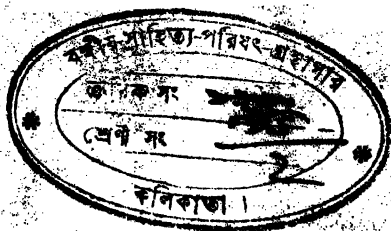 বঙ্গীয়-সাহিত্য-পরিষৎ-গ্রন্থাগার
ক্রমিক সং
শ্রেণী সং
2
কলিকাতা ।